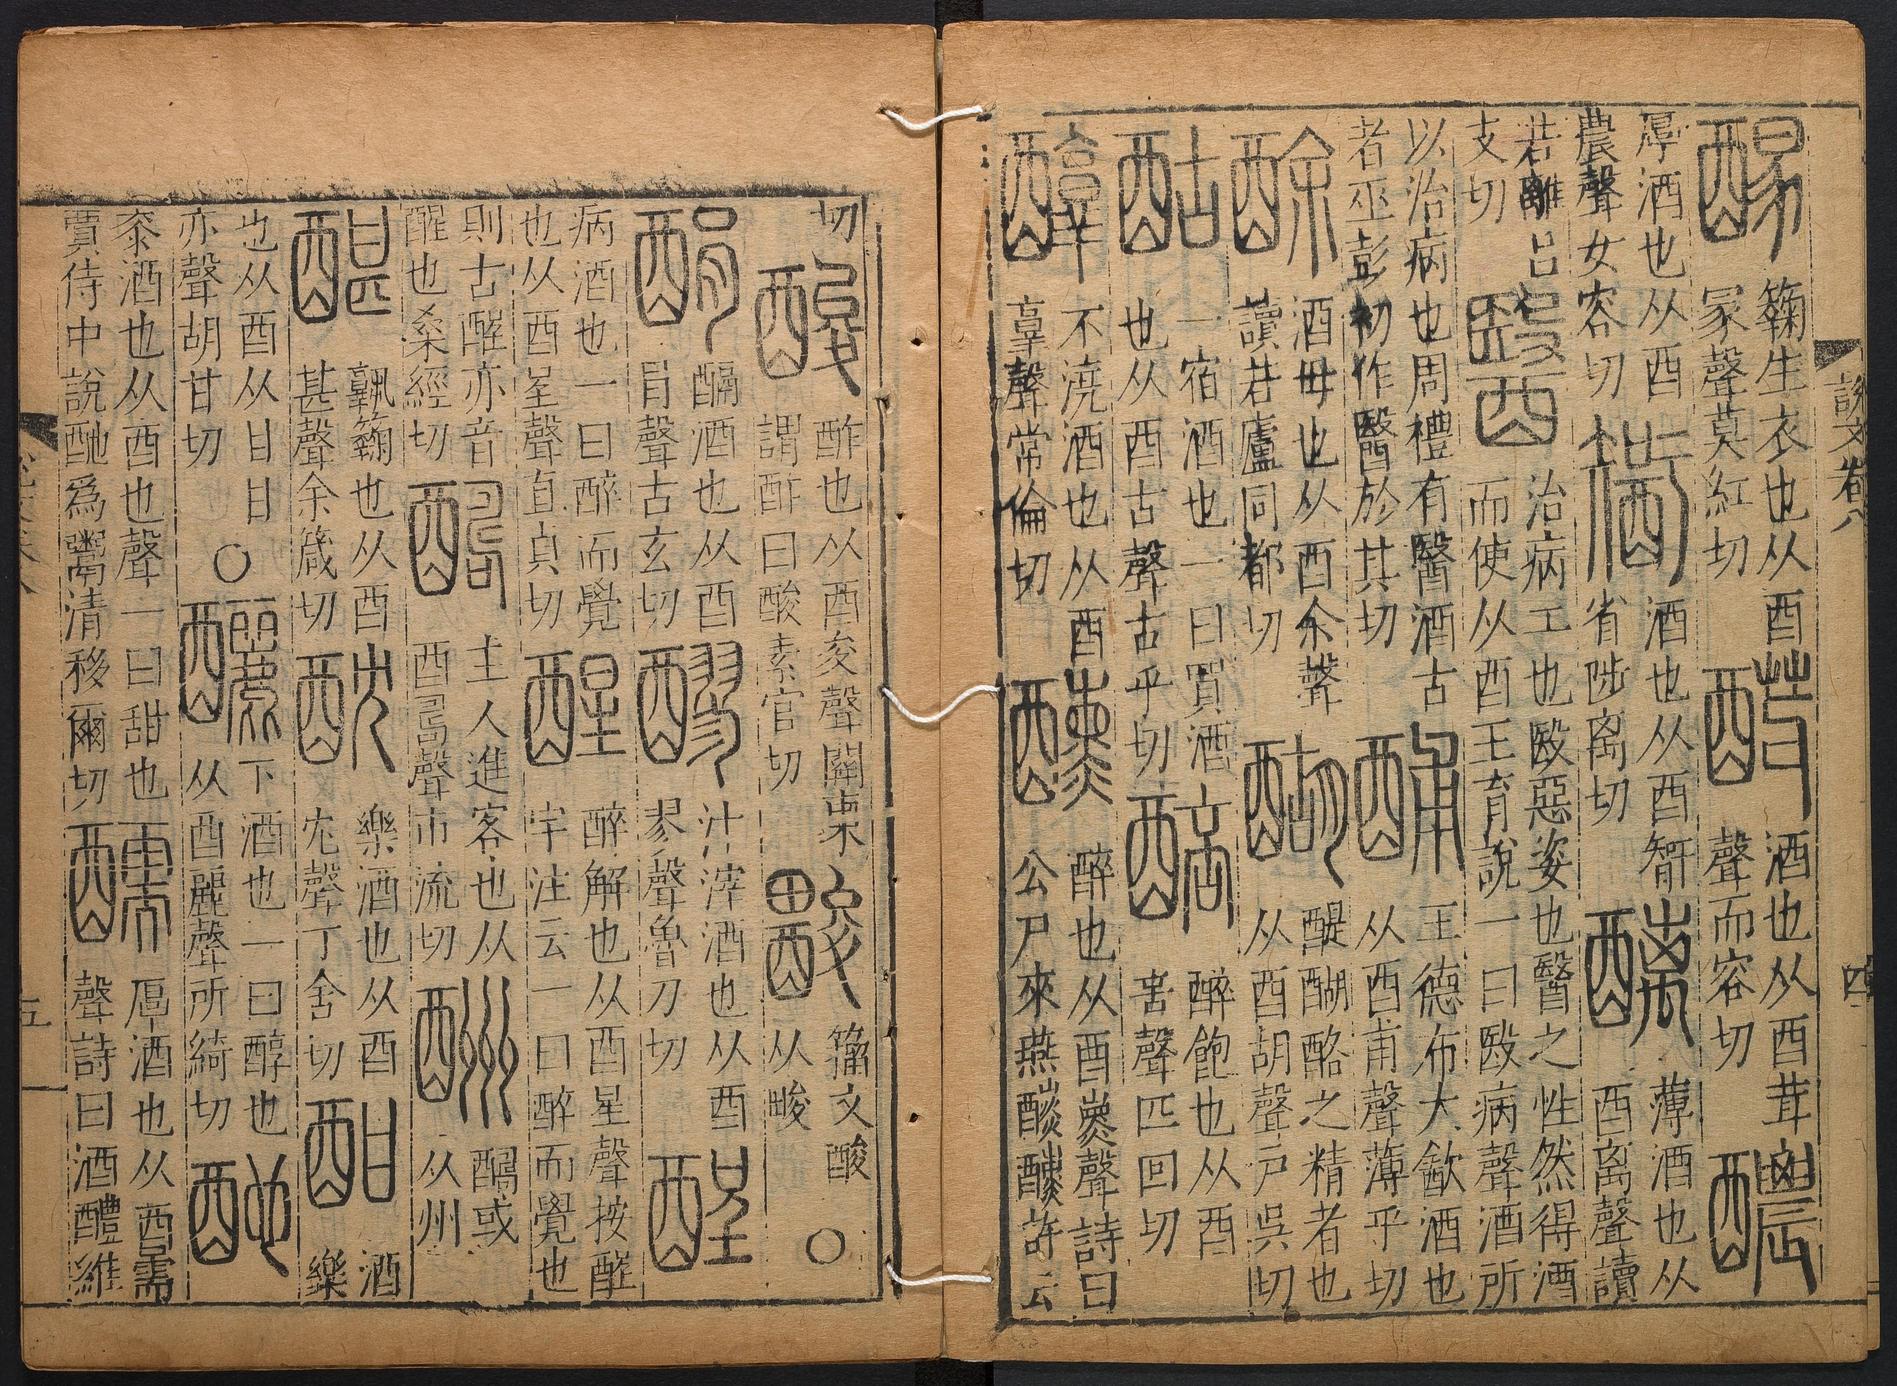 說文卷八
四
醙
籟生衣也从酉
冡聲莫紅切
酒也从酉茸
聲而容切
醲
厚酒也从酉
農聲女容切
酒也从酉
省陟离切
醨
薄酒也从
酉离聲讀
若離呂
支切
醫
治病工也殹惡姿也醫之性然得酒
而使从酉王育說一曰殹病聲酒所
以治病也周禮有醫酒古
者巫彭初作醫於其切
酺
王德布大飲酒也
从酉甫聲薄乎切
醐
醍醐酪之精者也
从酉胡聲戶吳切
酴
酒母也从酉余聲
讀若廬同都切
酤
一宿酒也一曰買酒
也从酉古聲古乎切
醉飽也从酉
咅聲匹回切
醇
不澆酒也从酉
𦎫聲常倫切
醺
醉也从酉熏聲詩曰
公尸來燕醺醺許云
切
酸
酢也从酉夋聲關東
謂酢曰酸素官切
籀文酸
从畯
○
酳
酳酒也从酉
肙聲古玄切
醪
汁滓酒也从酉
翏聲魯刀切
酲
病酒也一曰醉而覺
也从酉呈聲直貞切
醒
醉解也从酉星聲按酲
字注云一曰醉而覺也
則古醒亦音
醒也桑經切
主人進客也从
酉𠷎聲市流切
酬
醻或
从州
醓
籟也从酉
甚聲余箴切
酖
樂酒也从酉
冘聲丁含切
酣
酒樂
也从酉从甘甘
亦聲胡甘切
○
釃
下酒也一曰醇也
从酉麗聲所綺切
酏
黍酒也从酉也聲一曰甜也
賈侍中說酏爲鬻清移爾切
醹
厚酒也从酉需
聲詩曰酒醴維
五